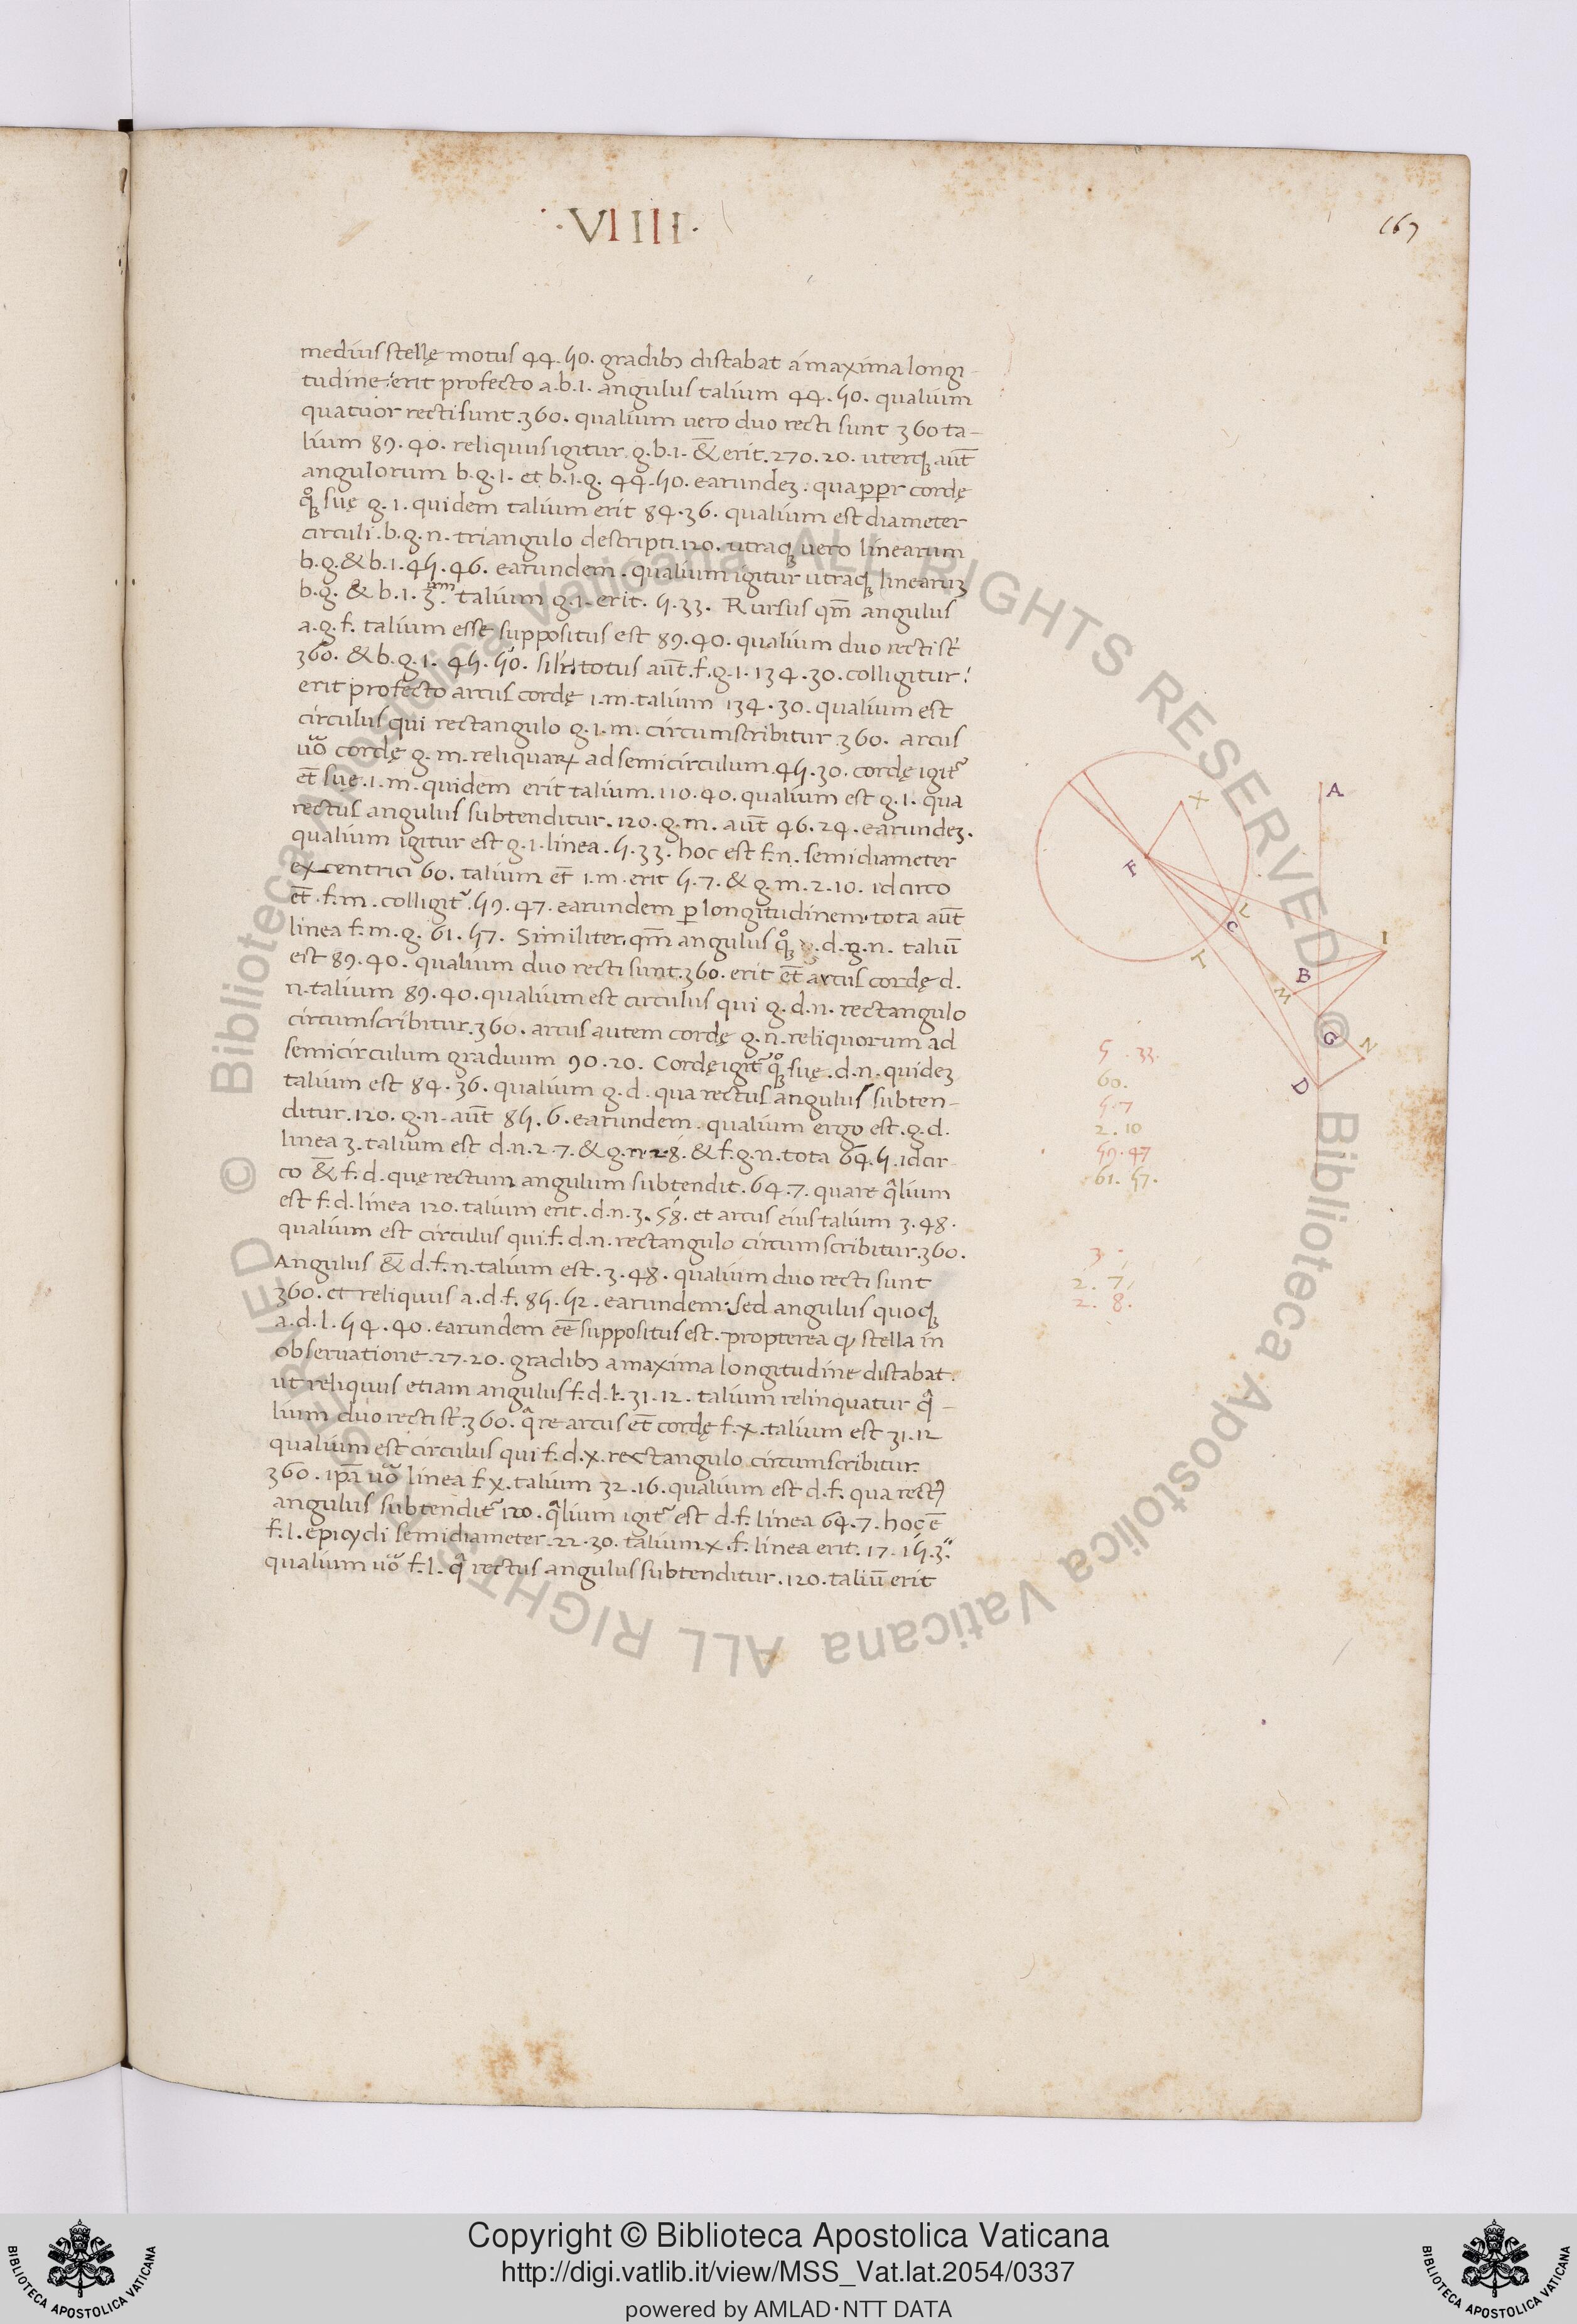 ·VIIII·
167
medius stellę motus 44.50. gradibꝰ distabat á maxima longi-
tudine: erit profecto a.b.i. angulus talium 44.50. qualium
quatuor recti sunt.360. qualium uero duo recti sunt 360 ta-
lium 89.40. reliquus igitur g.b.i. &̄ erit.270.20. uterqꝫ aut̄
angulorum b.g.i. et b.i.g. 44.50. earundeꝫ. quaꝓpr cordę
qͦꝫ suę g.i. quidem talium erit 84.36. qualium est diameter
circuli.b.g.n. triangulo descripti.120. utraqꝫ uero linearum
b.g.& b.i.45.46. earundem. qualium igitur utraqꝫ linearuꝫ
b.g. & b.i. 3.ᵘᵐ talium g.i. erit. 5.33. Rursus qm̄ angulus
a.g.f. talium esse suppositus est 89.40. qualium duo recti st̄
360. & b.g.i. 45.50. silr̄. totus aut̄.f.g.i.134.30. colligitur:
erit profecto arcus cordę i.m.talium 134.30. qualium est
circulus qui rectangulo g.i.m. circumscribitur 360. arcus
uō cordę g.m. reliquaꝝ ad semicirculum.45.30. cordę igit᷑
et̄ suę.i.m. quidem erit talium.110.40. qualium est g.i. qua
rectus angulus subtenditur.120. g.m. aut̄ 46.24. earundeꝫ.
qualium igitur est g.i. linea.5.33. hoc est f.n. semidiameter
excentrici 60. talium et̄ i.m. erit 5.7. & g.m.2.10. idcirco
et̄.f.m. colligit᷑.59.47. earundem ꝑ longitudinem. tota aut̄
linea f.m.g. 61.57. Similiter qm̄ angulus qͦꝫ d.g.n. taliū
est 89.40. qualium duo recti sunt.360. erit et̄ arcus cordę d.
n. talium 89.40. qualium est circulus qui g.d.n. rectangulo
circumscribitur.360. arcus autem cordę g.n. reliquorum ad
semicirculum graduum 90.20. Cordę igit᷑ qͦꝫ suę.d.n. quideꝫ
talium est 84.36. qualium g.d. qua rectus angulus subten-
ditur.120. g.n. aut̄ 85.6. earundem. qualium ergo est.g.d.
linea 3. talium est d.n.2.7. & g.n 2.8. & f.g.n. tota 64.5. idcir-
co &̄ f.d. que rectum angulum subtendit.64.7. quare q̄lium
est f.d. linea 120. talium erit. d.n.3.58. et arcus eius talium 3.48.
qualium est circulus qui.f.d.n. rectangulo circumscribitur.360.
Angulus &̄ d.f.n. talium est.3.48. qualium duo recti sunt
360. et reliquus a.d.f. 85.52. earundem: sed angulus quoqꝫ
a.d.l. 54.40. earundem eē suppositus est. propterea ꝙ stella in
obseruatione.27.20. gradibꝰ a maxima longitudine distabat.
ut reliquus etiam angulus f.d.l. 31.12. talium relinquatur q̄-
lium duo recti st̄.360. q̄re arcus et̄ cordę f.x. talium est 31.12
qualium est circulus qui f.d.x. rectangulo circumscribitur.
360. ip̄a uō linea f.x. talium 32.16. qualium est d.f. qua rectꝰ
angulus subtendit᷑ 120. q̄lium igit᷑ est d.f. linea 64.7. hoc ē
f.l. epicycli semidiameter.22.30. talium x.f. linea erit.17.15.3.
qualium uō f.l. q̄ rectus angulus subtenditur.120. taliū erit
A
X
F
L
C
I
T
B
M
G
N
D
5.33.
60.
5.7
2.10
59.47
61.57.
3.
2.7
2.8.
© Biblioteca Apostolica Vaticana ALL RIGHTS RESERVED © Biblioteca Apostolica Vaticana ALL RIGHTS RESERVED
BIBLIOTECA APOSTOLICA VATICANA
Copyright © Biblioteca Apostolica Vaticana
http://digi.vatlib.it/view/MSS_Vat.lat.2054/0337
powered by AMLAD·NTT DATA
BIBLIOTECA APOSTOLICA VATICANA